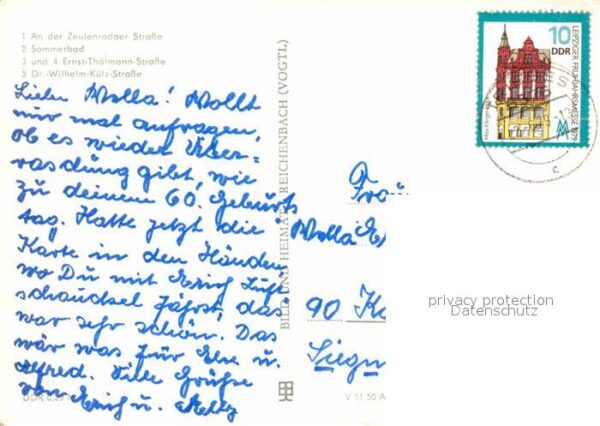 1 An der Zeulenrodaer Straße
2 Sommerbad
3 und 4 Ernst-Thälmann-Straße
5 Dr.-Wilhelm-Külz-Straße
Liebe Wolla! Wollt
nur mal anfragen,
ob es wieder Über=
raschung gibt, wie
zu deinem 60. Geburts
tag. Hatte jetzt die
Karte in den Händen
wo Du mit Erich Luft
schaukel fährst, das
war sehr schön. Das
wär was für Else u.
Alfred. Viele Grüße
von Erich u.
DDR 0,25 M
BILD UND HEIMAT REICHENBACH (VOGTL)
V 11 50 A
10
DDR
LEIPZIGER FRÜHJAHRSMESSE 1979
c
Frau
Wolla
90 Ka
privacy protection
Datenschutz